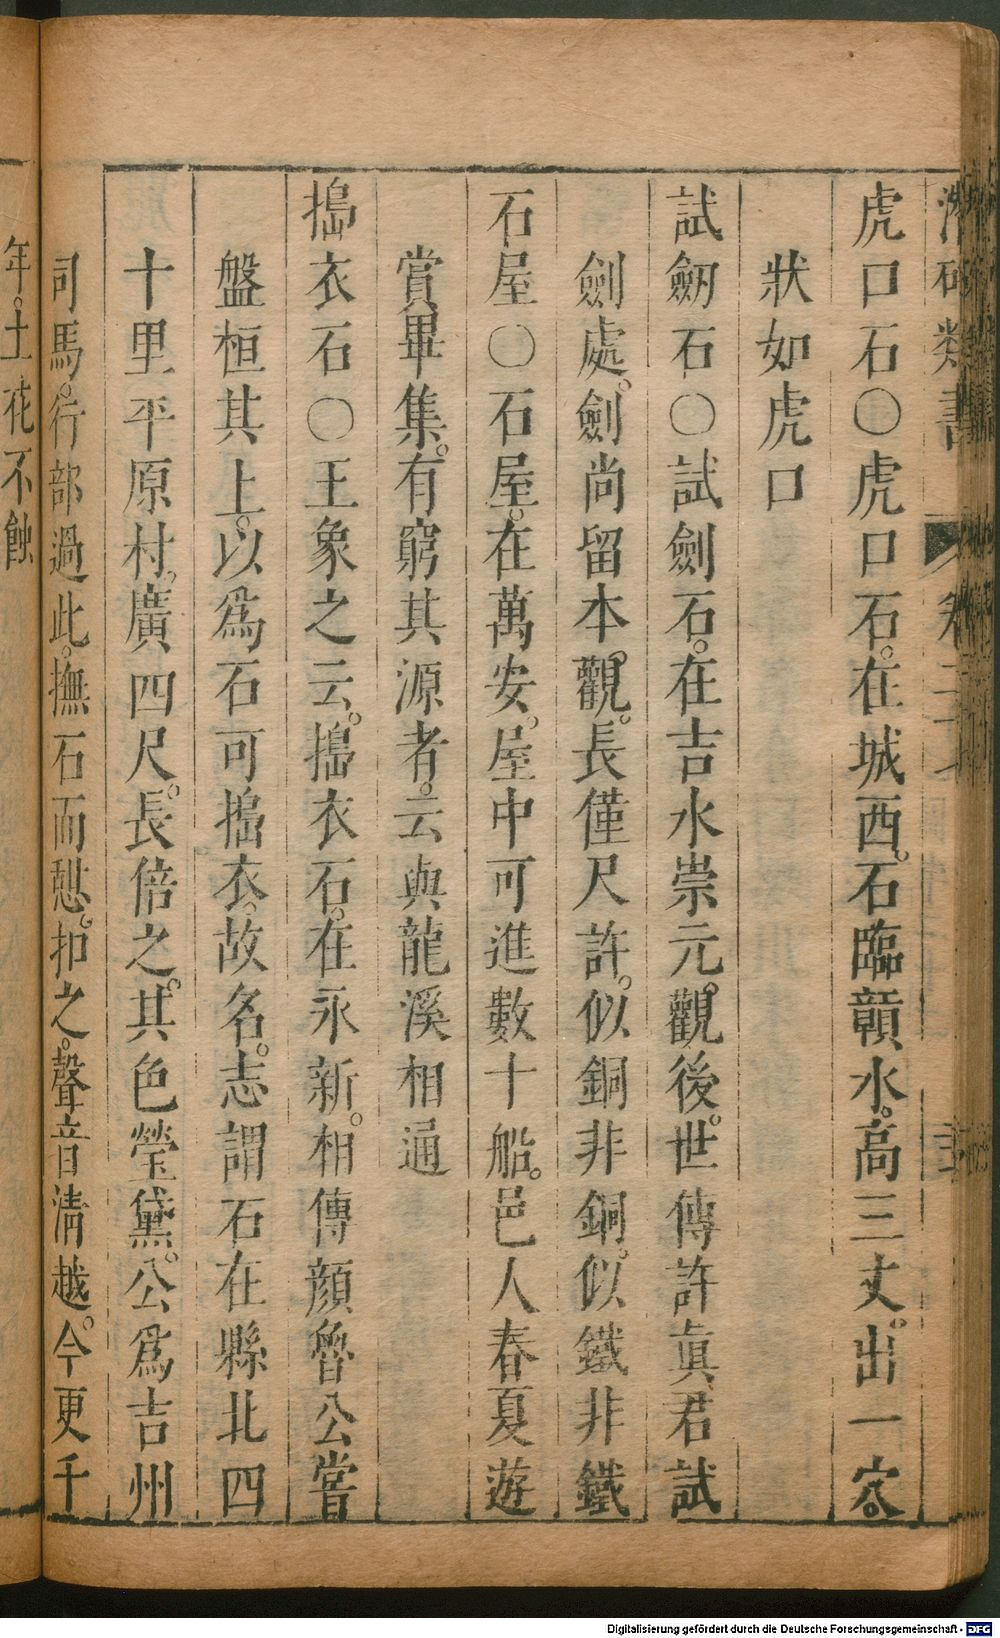 類書
虎口石○虎口石。在城西。石臨贑水。高三丈。出一穴。
狀如虎口
試劒石○試劍石。在吉水崇元。觀後。世傳許眞君試
劍處。劍尚留本。觀。長僅尺許。似銅非銅。似鐵非鐵
石屋○石屋。在萬安。屋中可進數十船。邑人春夏遊
賞畢集。有窮其源者。云與龍溪相通
搗衣石○王象之云。搗衣石。在永新。相傳顔魯公嘗
盤桓其上。以爲石可搗衣。故名。志謂石在縣北四
十里平原村。廣四尺。長倍之。其色瑩黛。公爲吉州
司馬。行部過此。撫石而憇。扣之。聲音清越。今更千
年。土花不蝕
Digitalisierung gefördert durch die Deutsche Forschungsgemeinschaft - DFG